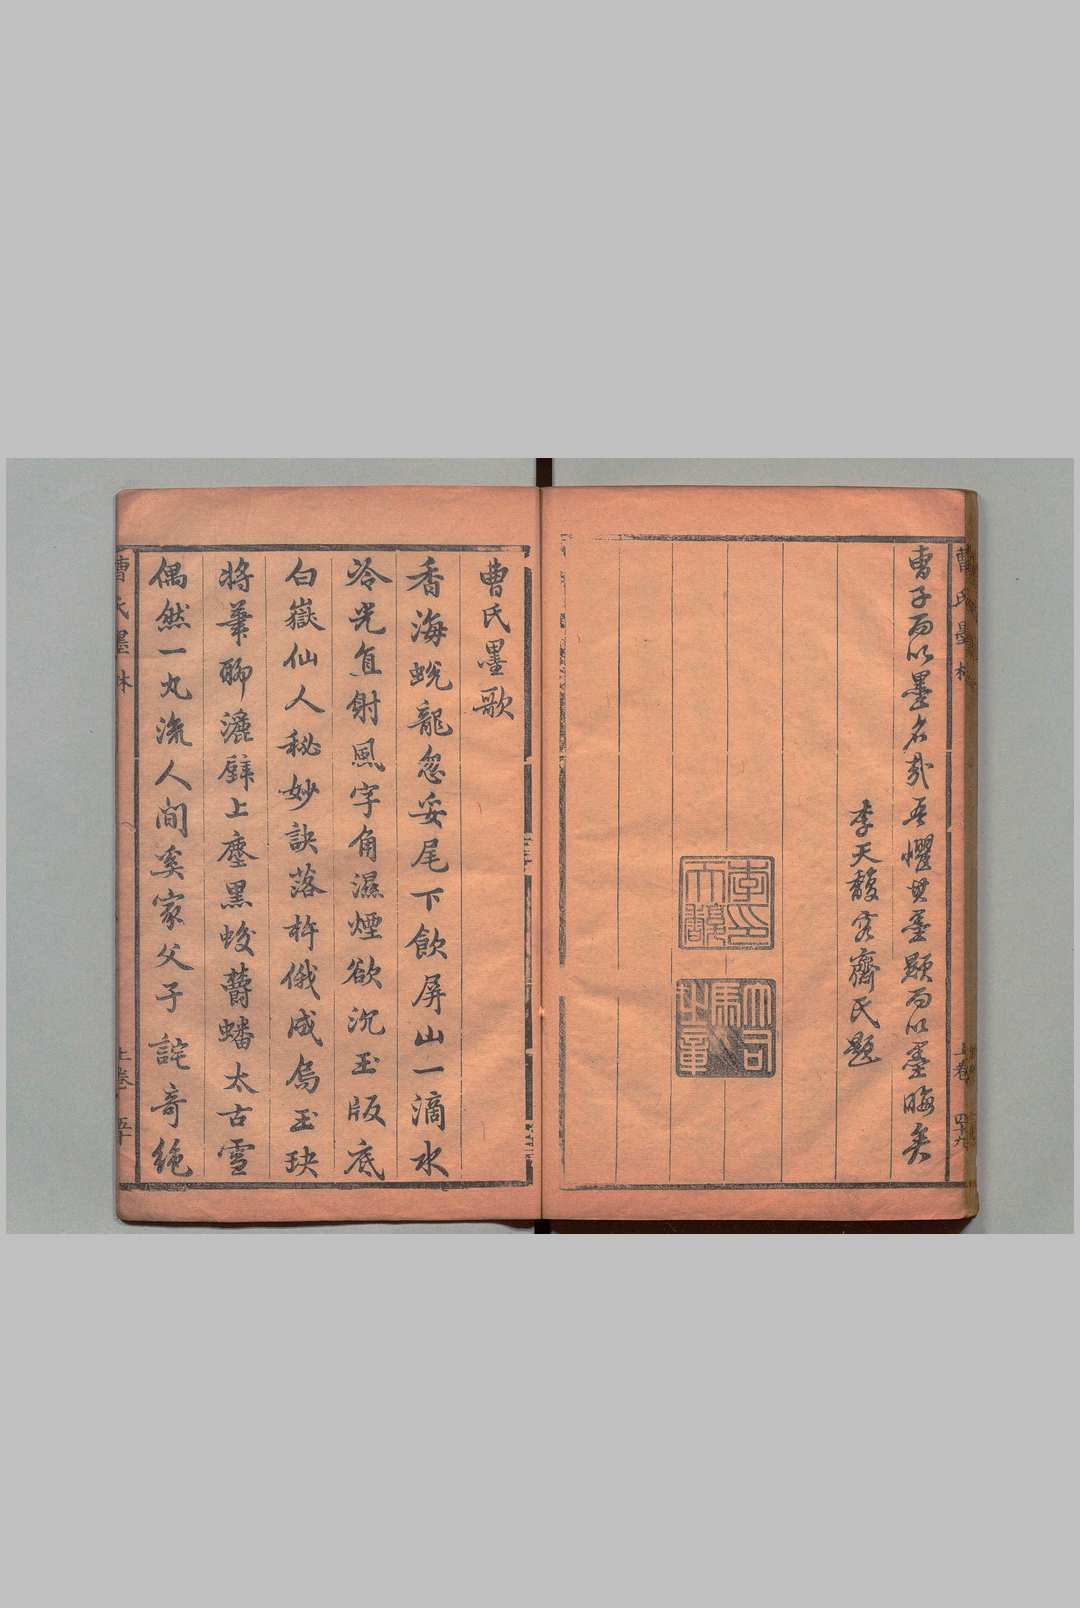 曹氏墨林
上卷
四十九
曹子而以墨名哉吾懼其墨顯而以墨晦矣
李天馥容齋氏題
李天馥印
大司馬章
曹氏墨歌
香海蛻龍忽妥尾下飲屏山一滴水
冷光直射風字角濕煙欲沉玉版底
白嶽仙人秘妙訣落杵俄成烏玉玦
將筆聊灑壁上塵黑蛟蟠太古雪
偶然一丸流人間奚家父子詫奇絶
曹氏墨林
上卷
五十